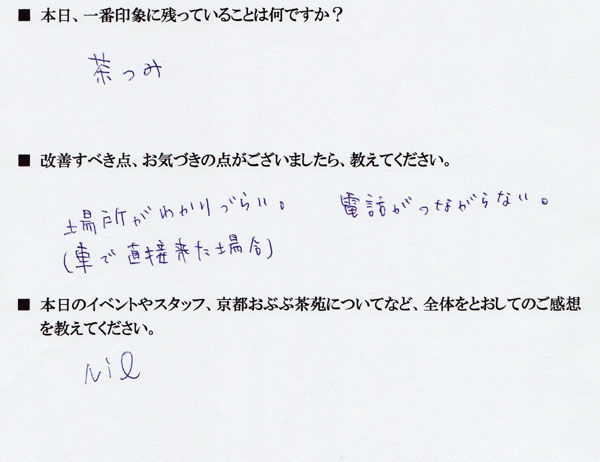 ■ 本日、一番印象に残っていることは何ですか？
茶つみ
■ 改善すべき点、お気づきの点がございましたら、教えてください。
場所がわかりづらい。 電話がつながらない。
(車で直接来た場合)
■ 本日のイベントやスタッフ、京都おぶぶ茶苑についてなど、全体をとおしてのご感想
を教えてください。
Nil